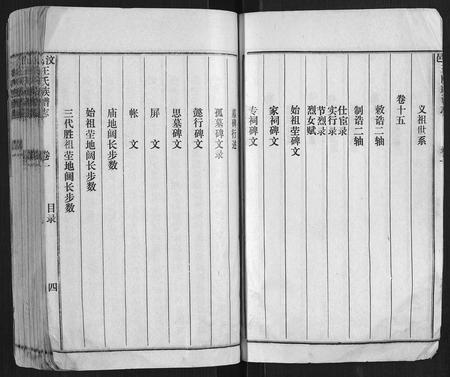 义祖世系
卷十五
敕诰二轴
制诰二轴
仕宦录
实行录
节烈录
烈女赋
始祖茔碑文
家祠碑文
专祠碑文
墓碑行述
孤墓碑文录
懿行碑文
思墓碑文
屏 文
帐 文
庙地阔长步数
始祖茔地阔长步数
三代胜祖茔地阔长步数
汶 汪氏族谱志 卷一 目录 四